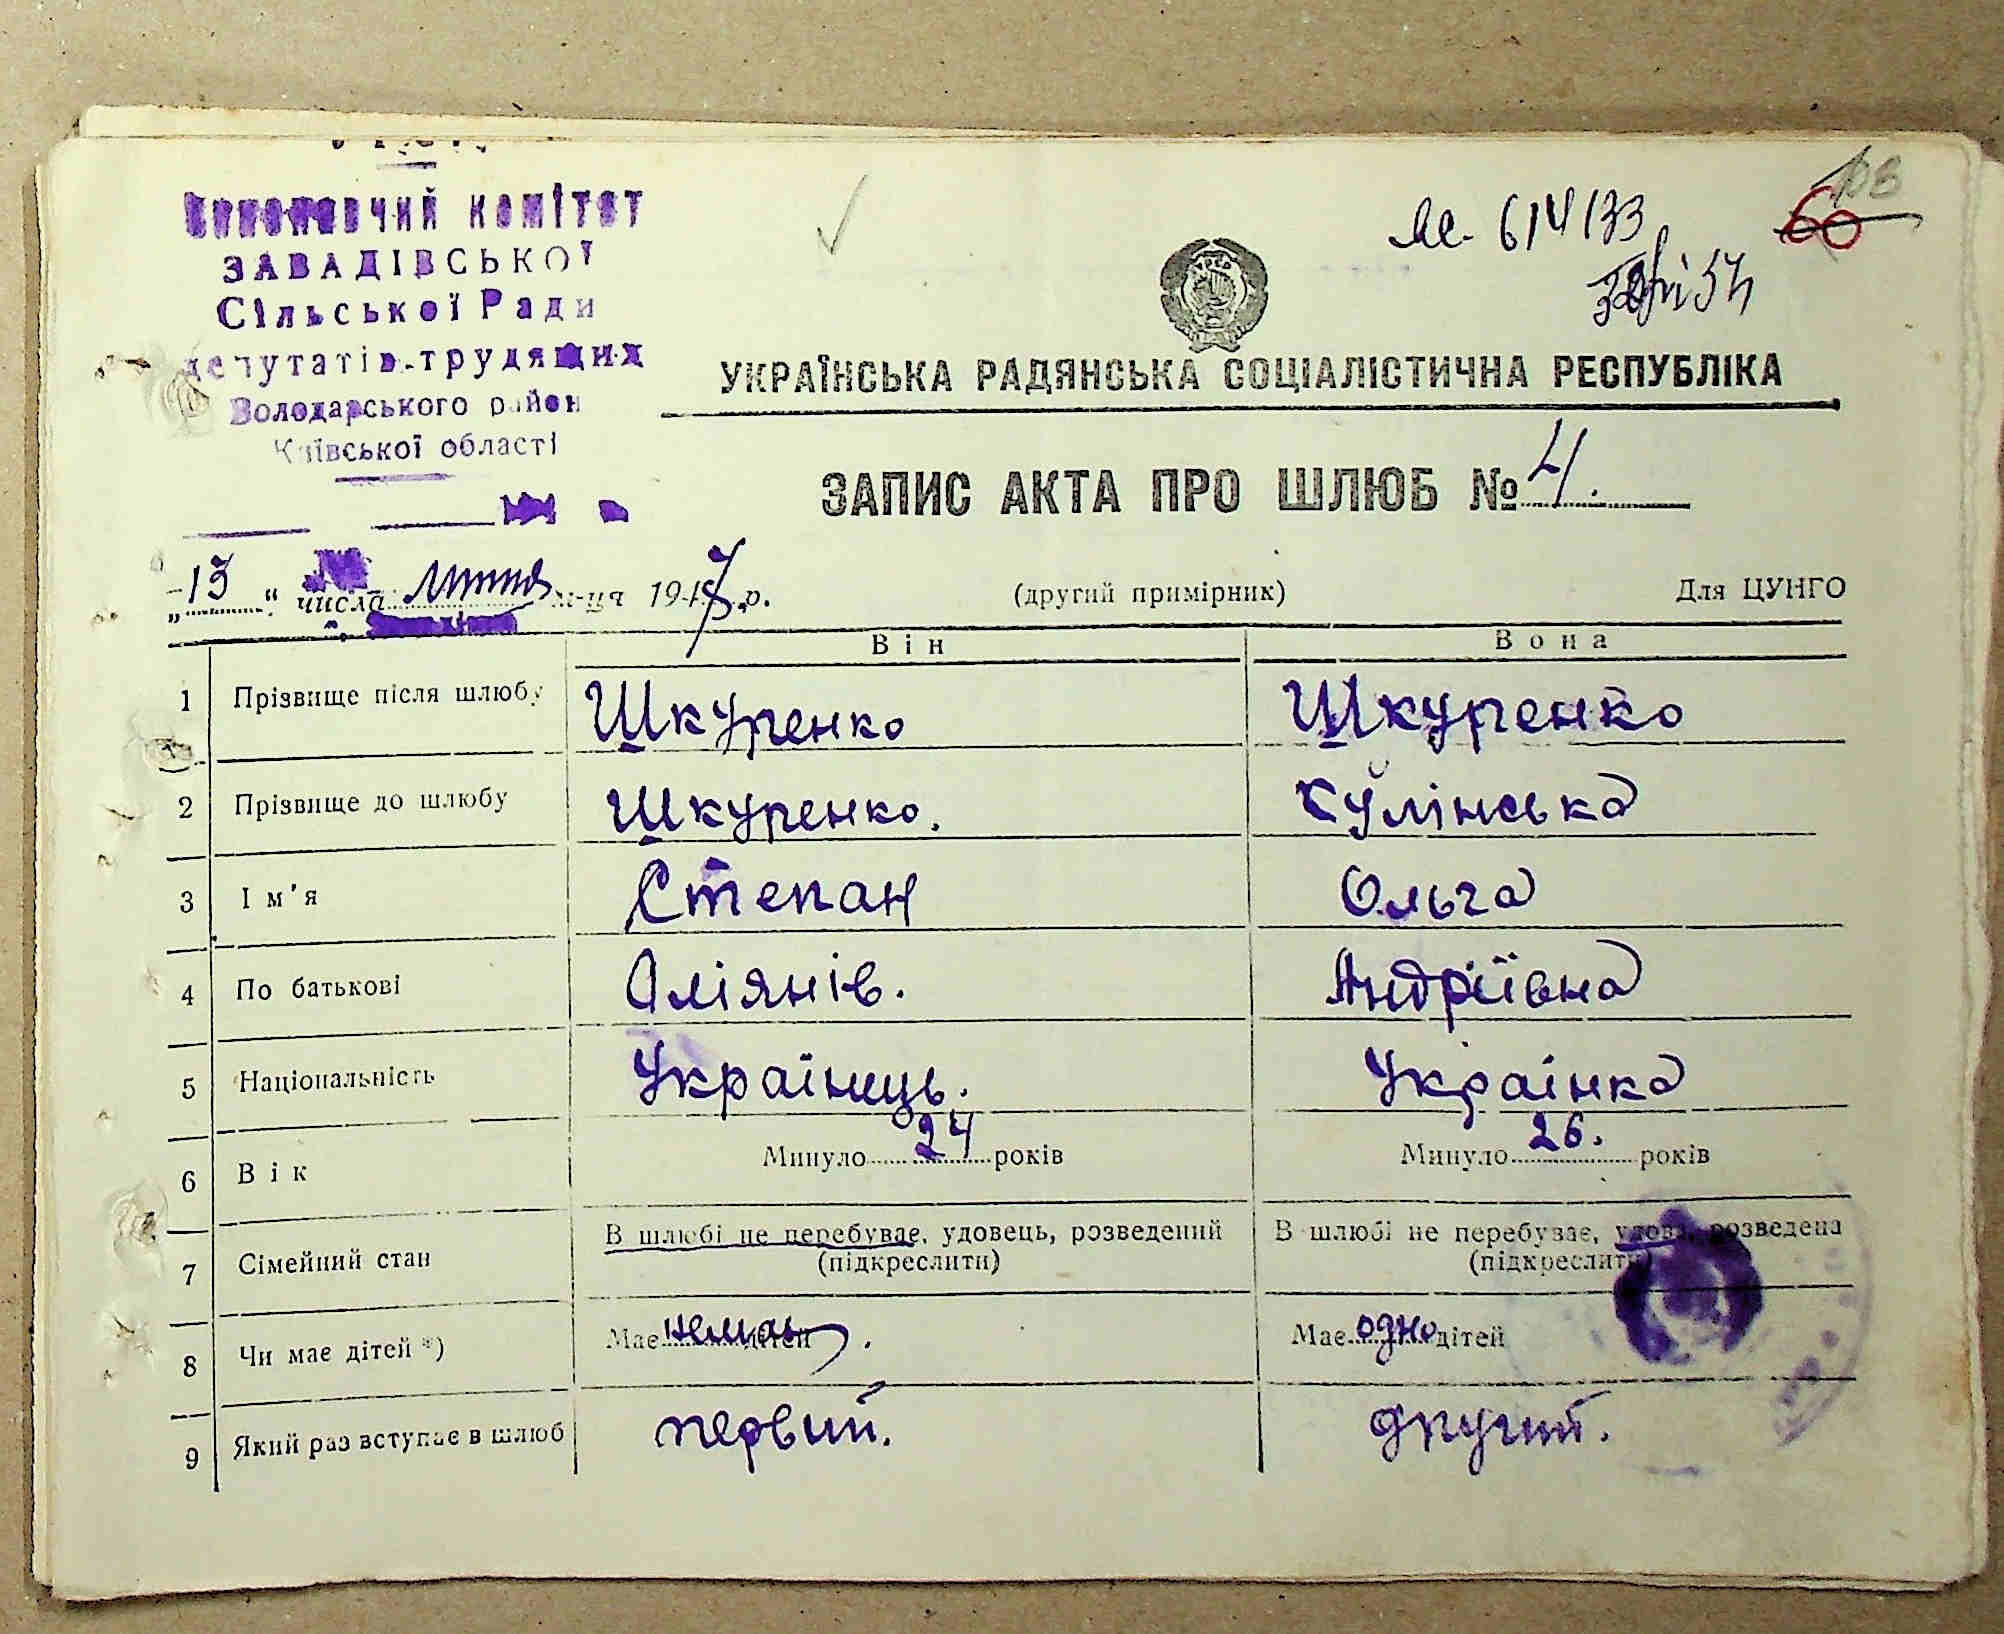 Виконавчий комітет
ЗАВАДІВСЬКОЇ
Сільської Ради
депутатів-трудящих
Володарського район
Київської області
60
УКРАЇНСЬКА РАДЯНСЬКА СОЦІАЛІСТИЧНА РЕСПУБЛІКА
ЗАПИС АКТА ПРО ШЛЮБ № 4.
„13“ числа липня м-ця 1947 р. (другий примірник) Для ЦУНГО
Він Вона
1 Прізвище після шлюбу Шкуренко Шкуренко
2 Прізвище до шлюбу Шкуренко. Кулінська
3 Ім'я Степан Ольга
4 По батькові Оліянів. Андріївна
5 Національність Українець. Українка
6 Вік Минуло 24 років Минуло 26. років
7 Сімейний стан В шлюбі не перебуває, удовець, розведений В шлюбі не перебуває, удова, розведена
(підкреслити) (підкреслити)
8 Чи має дітей *) Має немає дітей. Має одно дітей
9 Який раз вступає в шлюб первий. другий.